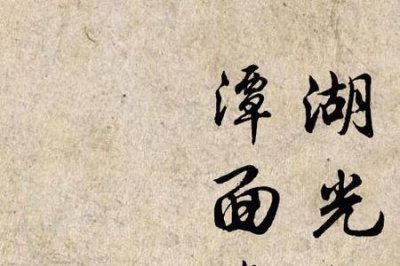 湖光
潭面